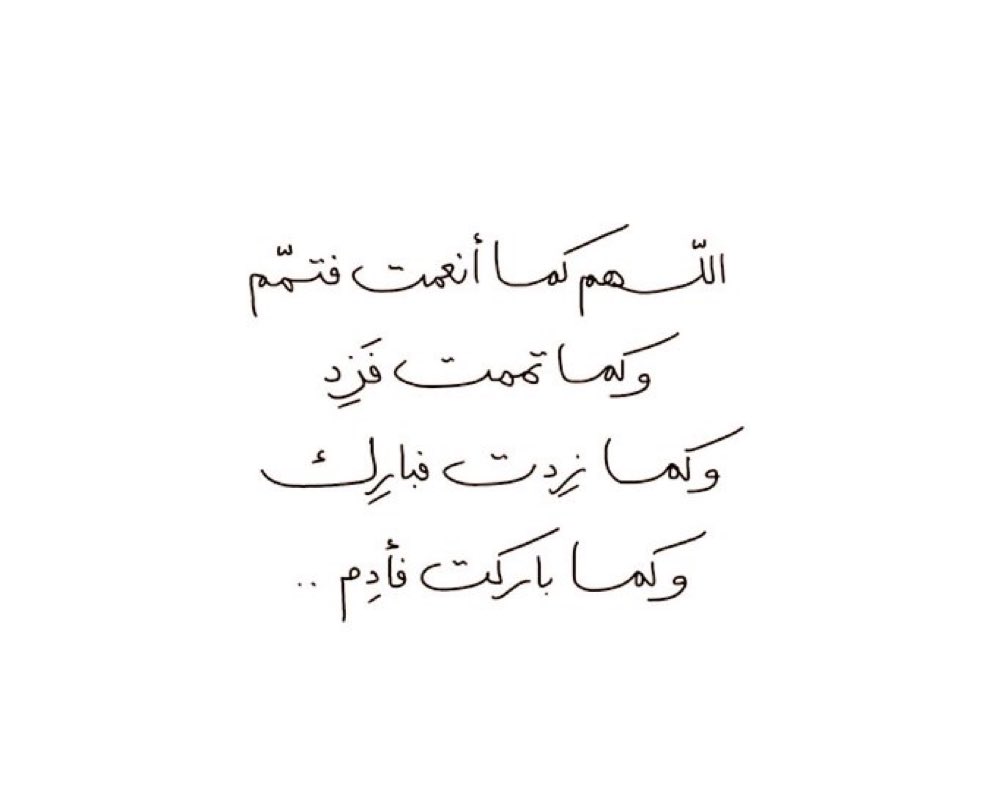 اللّـهم كما أنعمت فتمّم
وكما تممت فَزِد
وكما زِدت فبارِك
وكما باركت فأدِم ..